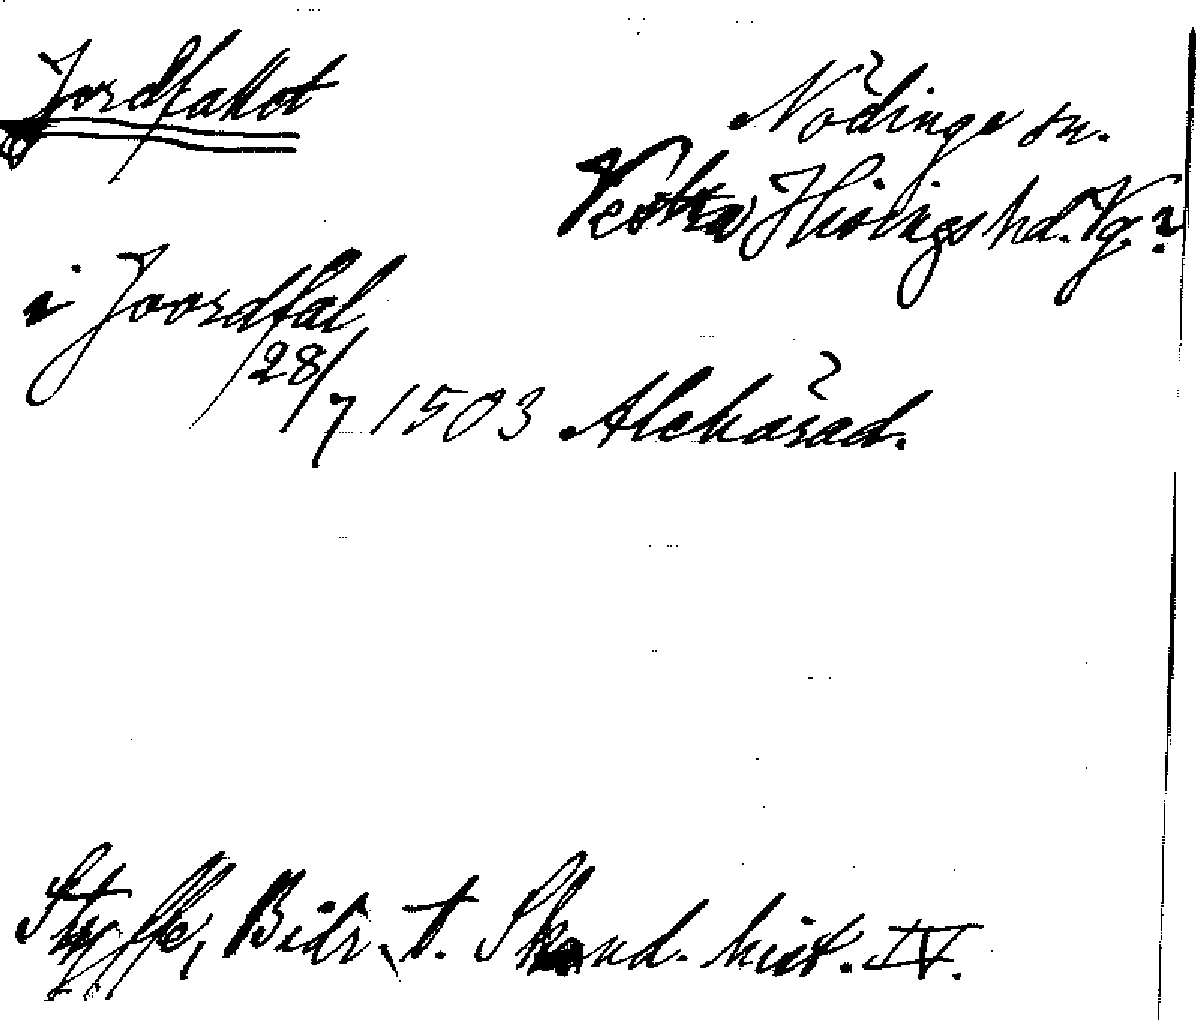 Jordfallet
Nödinge sn.
Vestra Hisings hd. Vg. ?
i Joordfal
28/7 1503 Aleharad.
Styffe, Bidr. t. Skand. hist. IV.